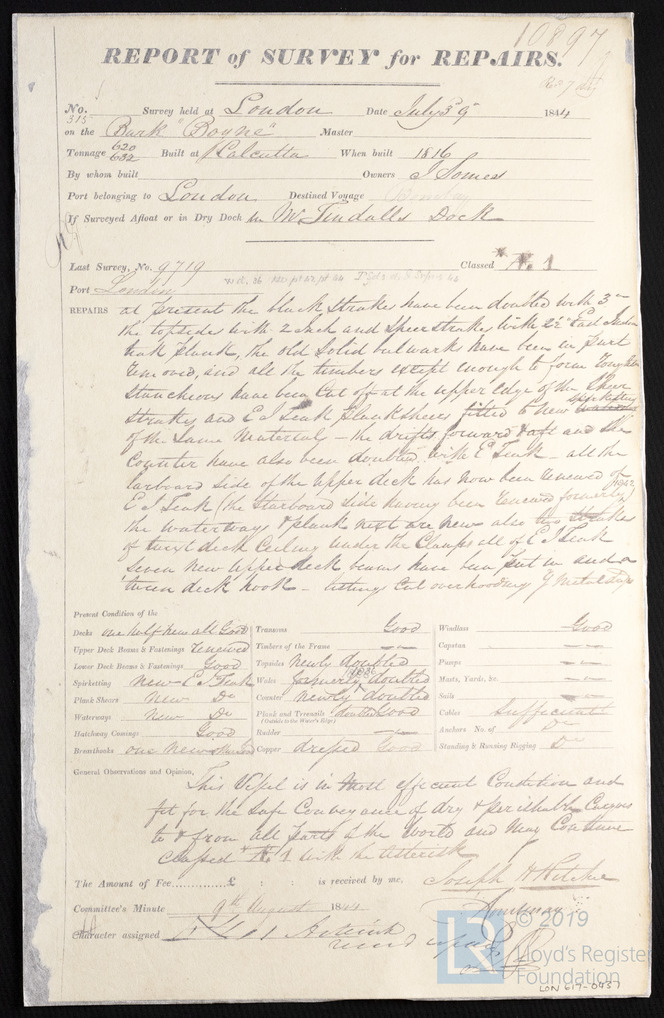 10897
REPORT of SURVEY for REPAIRS.
No. 315 Survey held at London Date July 3 & 9 1844
on the Bark "Boyne" Master
Tonnage 620 632 Built at Calcutta When built 1816
By whom built Owners J Somes
Port belonging to London Destined Voyage
If Surveyed Afloat or in Dry Dock in Mr Tindalls Dock
Last Survey, No. 9719 Classed * Æ. 1
Port London
REPAIRS at present the black strakes have been doubled with 3 in
the topsides with 2 Inch and Sheerstrakes with 2½ East India
teak plank, the old solid bulwarks have been in part
removed, and all the timbers except enough to form
Stancheons have been cut off at the upper edge of the Sheer
strakes and E I Teak Plansheers fitted to new spirketting
of the same material – the drifts forward & aft and the
Counter have also been doubled with E Teak – all the
larboard side of the upper deck has now been renewed of
E I Teak (the Starboard side having been renewed formerly 1842)
the waterways & plank next are new also two strakes
of twixt deck Ceiling under the Clamps all of E I Teak
Seven new upper deck beams have been put in and a
tween deck hook –
Present Condition of the
Decks one half new all Good
Upper Deck Beams & Fastenings renewed
Lower Deck Beams & Fastenings Good
Spirketting new E I Teak
Plank Shears new Do
Waterways new Do
Hatchway Comings Good
Breasthooks one new
Transoms Good
Timbers of the Frame
Topsides newly doubled
Wales formerly 1836 doubled
Counter newly doubled
Plank and Treenails doubled Good
(Outside to the Water's Edge.)
Rudder
Copper Good
Windlass Good
Capstan
Pumps
Masts, Yards, &c.
Sails
Cables Sufficient
Anchors No. of Do
Standing & Running Rigging Do
General Observations and Opinion,
This Vessel is in most efficient Condition and
fit for the Safe Conveyance of dry & perishable Cargoes
to & from all parts of the World and may Continue
classed * Æ 1 with the asterisk
The Amount of Fee..............£ : : is received by me,
Committee's Minute 9th August 1844
Character assigned Æ 1 Asterisk
© 2019
LR
Lloyd's Register
Foundation
LON 617-0437